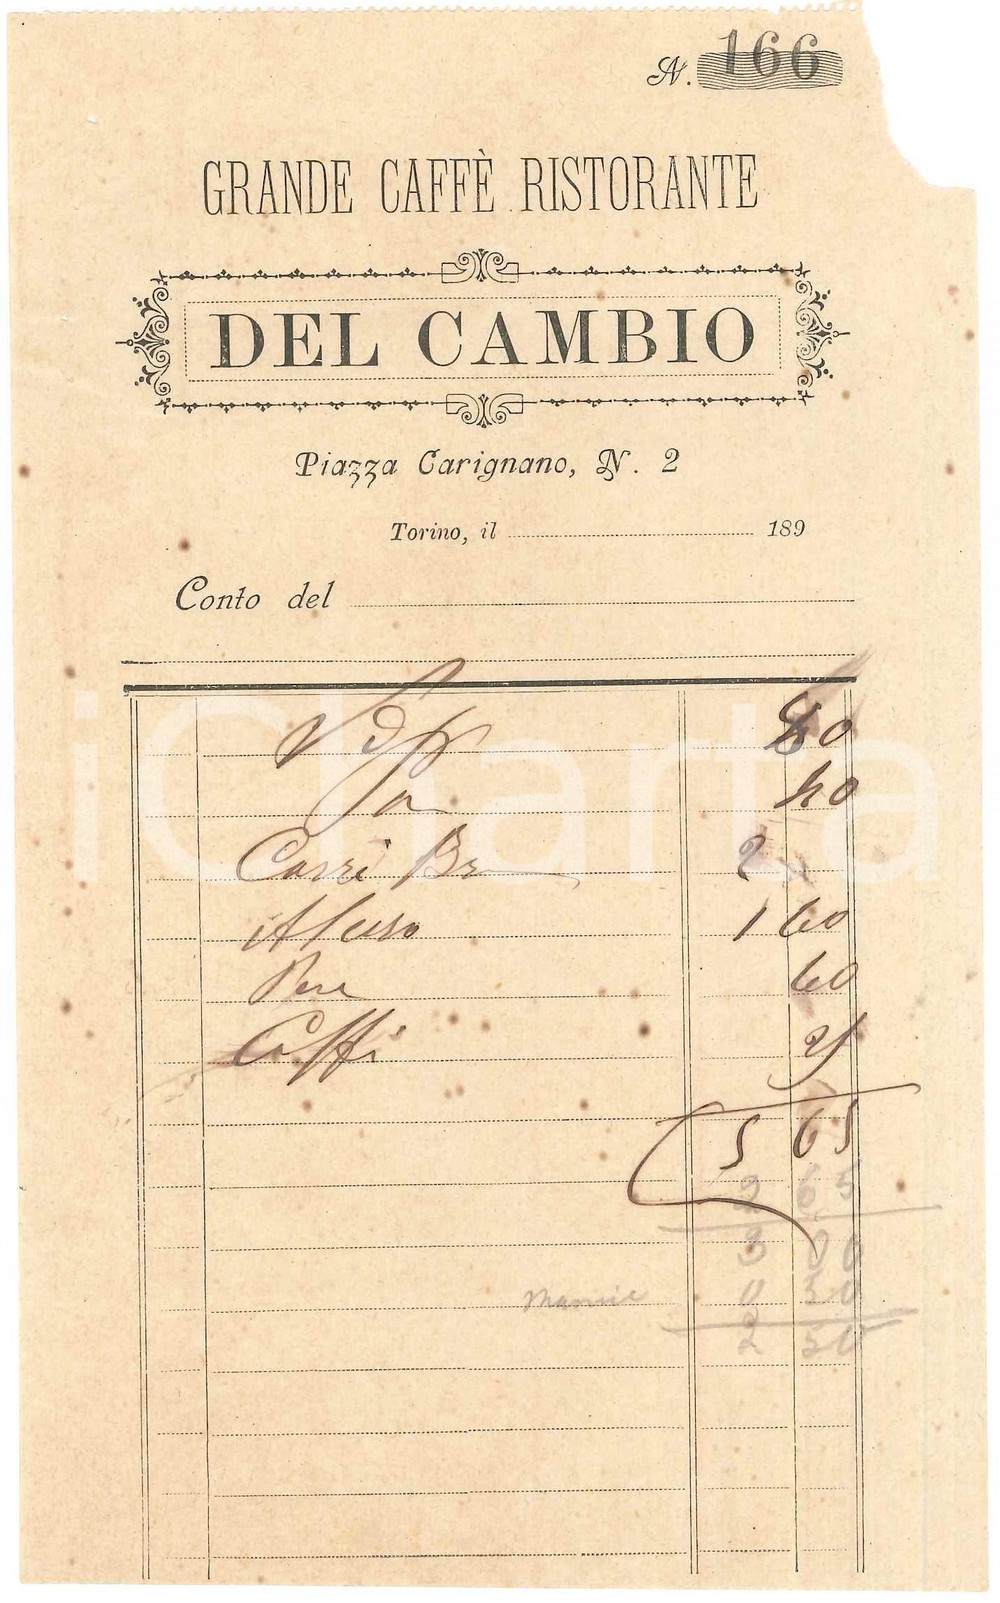 N. 166
GRANDE CAFFÈ RISTORANTE
DEL CAMBIO
Piazza Carignano, N. 2
Torino, il 189
Conto del
80
40
Carrè Br 2
1 60
Pere 60
Caffè 25
5 65
2 65
3 00
0 50
2 50
iCharta